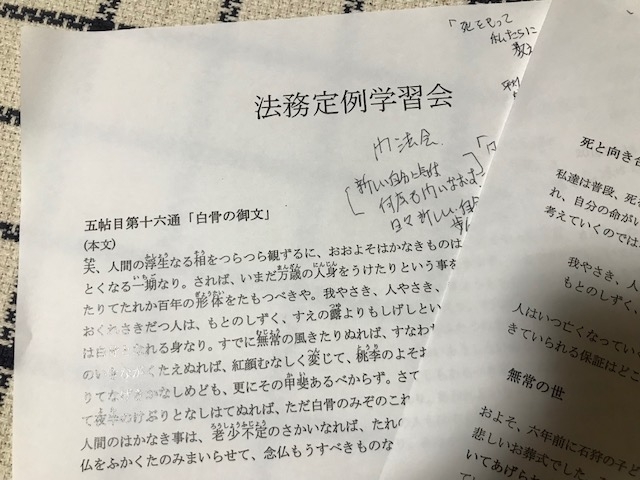 法務定例学習会
「死を以て
私たちに
内法会
新しい自分と出
何度も内いなおす
日々新しい自
五帖目第十六通「白骨の御文」
(本文)
夫、人間の浮生なる相をつらつら観ずるに、おおよそはかなきものは
とくなる一期なり。されば、いまだ万歳の人身をうけたりという事を
たりてたれか百年の形体をたもつべきや。我やさき、人やさき、
おくれさきだつ人は、もとのしずく、すえの露よりもしげしとい
は白 れる身なり。すでに無常の風きたりぬれば、すなわち
たえぬれば、紅顔むなしく変じて、桃李のよそお
りて かなしめども、更にその甲斐あるべからず。さて
て夜半のけぶりとなしはてぬれば、ただ白骨のみぞのこれ
人間のはかなき事は、老少不定のさかいなれば、たれの
仏をふかくたのみまいらせて、念仏もうすべきものな
死と向き合
私達は普段、死
れ、自分の命がい
考えていくのでは
我やさき、人
もとのしずく、
人はいつ亡くなってい
きていられる保証はどこ
無常の世
およそ、六年前に石狩の子ど
悲しいお葬式でした。
いてあげられ